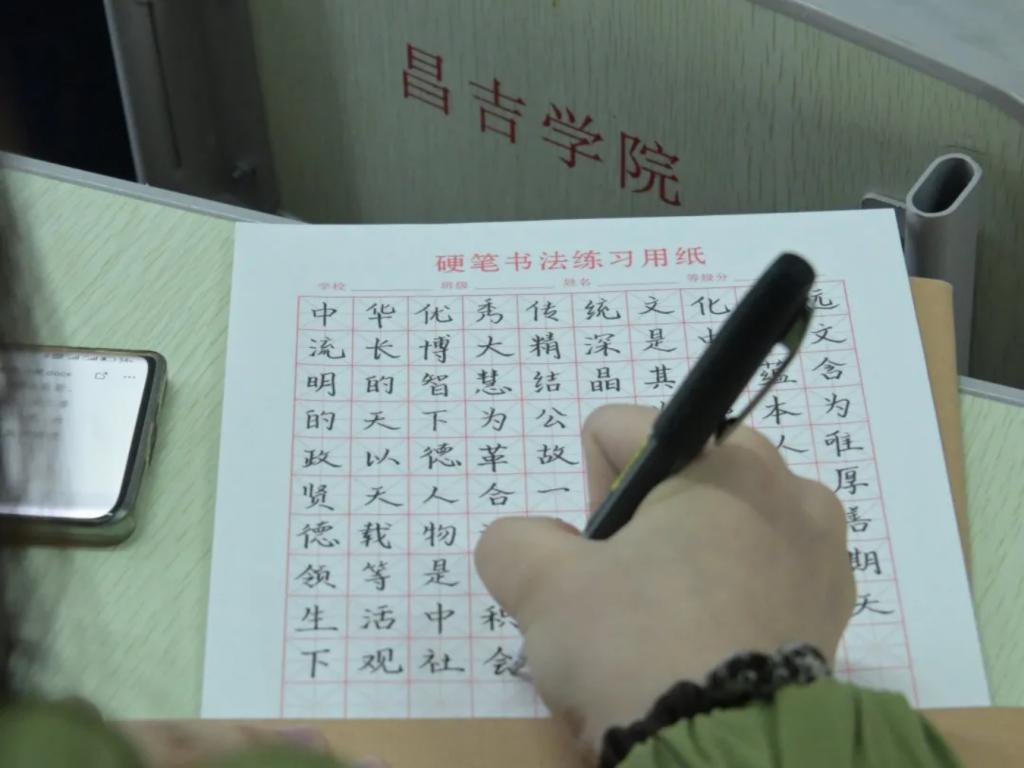 昌吉学院
硬笔书法练习用纸
学校 班级 姓名 等级分
中华优秀传统文化 远
流长博大精深是中 文
明的智慧结晶其 蕴含
的天下为公 本为
政以德革故 人唯
贤天人合一 厚
德载物 善
领等是 期
生活中积 天
下观社会